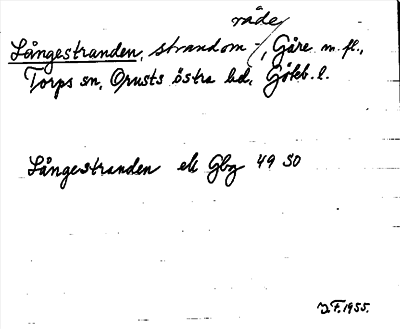 råde/
Långestranden, strandom-/, Gåre m. fl.,
Torps sn, Orusts östra hd, Göteb. l.
Långestranden ek Gbg 49 SO
J.F. 1955.